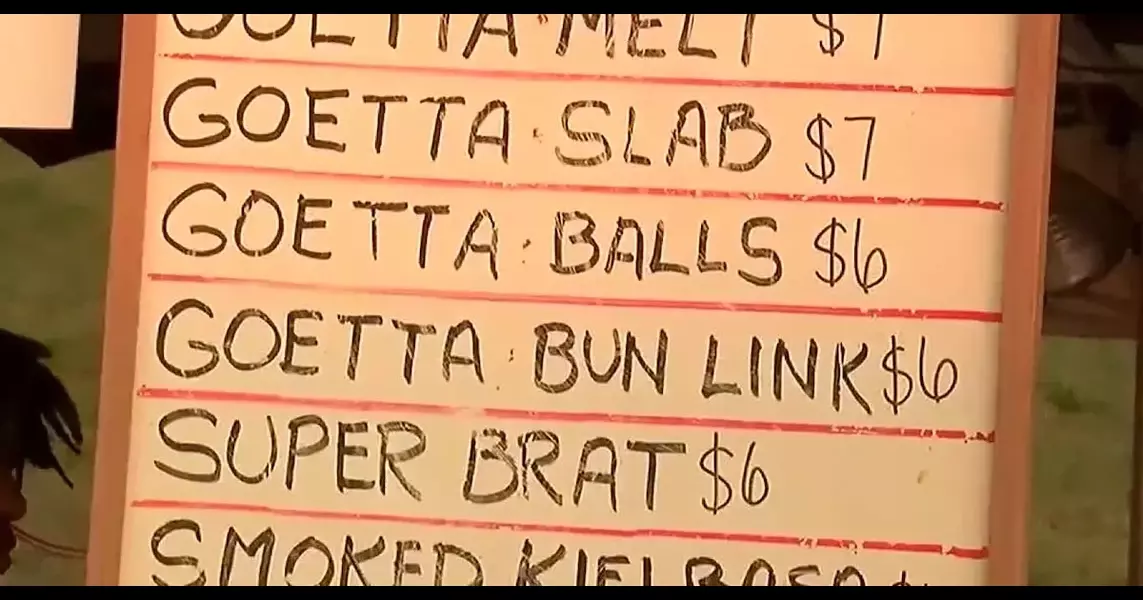 GOETTA MELT $7
GOETTA SLAB $7
GOETTA BALLS $6
GOETTA BUN LINK $6
SUPER BRAT $6
SMOKED KIELBASA